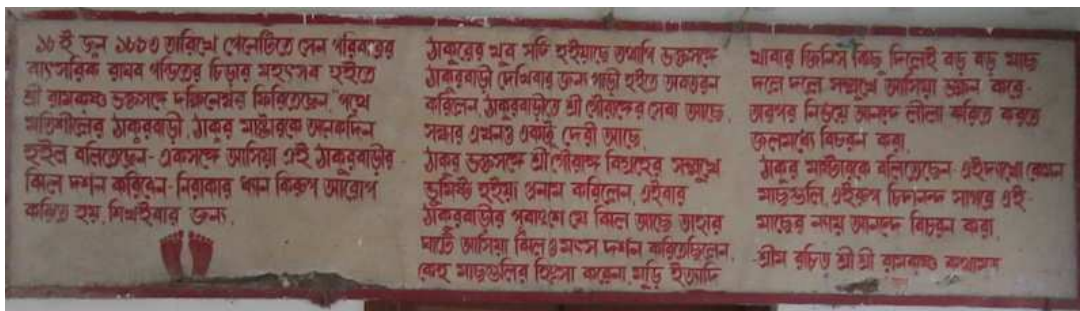 ১৮ ই জুন ১৮৮৩ তারিখে পেনেটিতে সেন পরিবারের
বাৎসরিক রাঘব পণ্ডিতের চিড়ার মহৎসব হইতে
শ্রী রামকৃষ্ণ ভক্তসঙ্গে দক্ষিনেশ্বর ফিরিতেছেন, পথে
মতিশীলের ঠাকুরবাড়ী, ঠাকুর মাষ্টারকে অনেকদিন
হইল বলিতেছেন - একসঙ্গে আসিয়া এই ঠাকুরবাড়ীর
ঝিল দর্শন করিবেন - নিরাকার ধ্যান কিরূপ আরোপ
করিতে হয়, শিখাইবার জন্য,
ঠাকুরের খুব সর্দি হইয়াছে তথাপি ভক্তসঙ্গে
ঠাকুরবাড়ী দেখিবার জন্য গাড়ী হইতে অবতরন
করিলেন, ঠাকুরবাড়ীতে শ্রী গৌরাঙ্গের সেবা আছে,
সন্ধার এখনও একটু দেরী আছে,
ঠাকুর ভক্তসঙ্গে শ্রী গৌরাঙ্গ বিগ্রহের সম্মুখে
ভূমিষ্ট হইয়া প্রনাম করিলেন, এইবার
ঠাকুরবাড়ীর পূর্বাংশে যে ঝিল আছে তাহার
ঘাটে আসিয়া ঝিল ও মৎস দর্শন করিতেছিলেন,
কেহ মাছগুলির হিংসা করেনা, মুড়ি ইত্যাদি
খাবার জিনিস কিছু দিলেই বড় বড় মাছ
দলে দলে সম্মুখে আসিয়া ভক্ষন করে -
তারপর নির্ভয়ে আনন্দে লীলা করিতে করতে
জলমধ্যে বিচরন করা,
ঠাকুর মাষ্টারকে বলিতেছেন - এইদ্যাখো কেমন
মাছগুলি, এইরূপ চিদানন্দ সাগরে এই -
মাছের ন্যায় আনন্দে বিচরন করা,
শ্রীম রচিত শ্রী শ্রী রামকৃষ্ণ কথামৃত